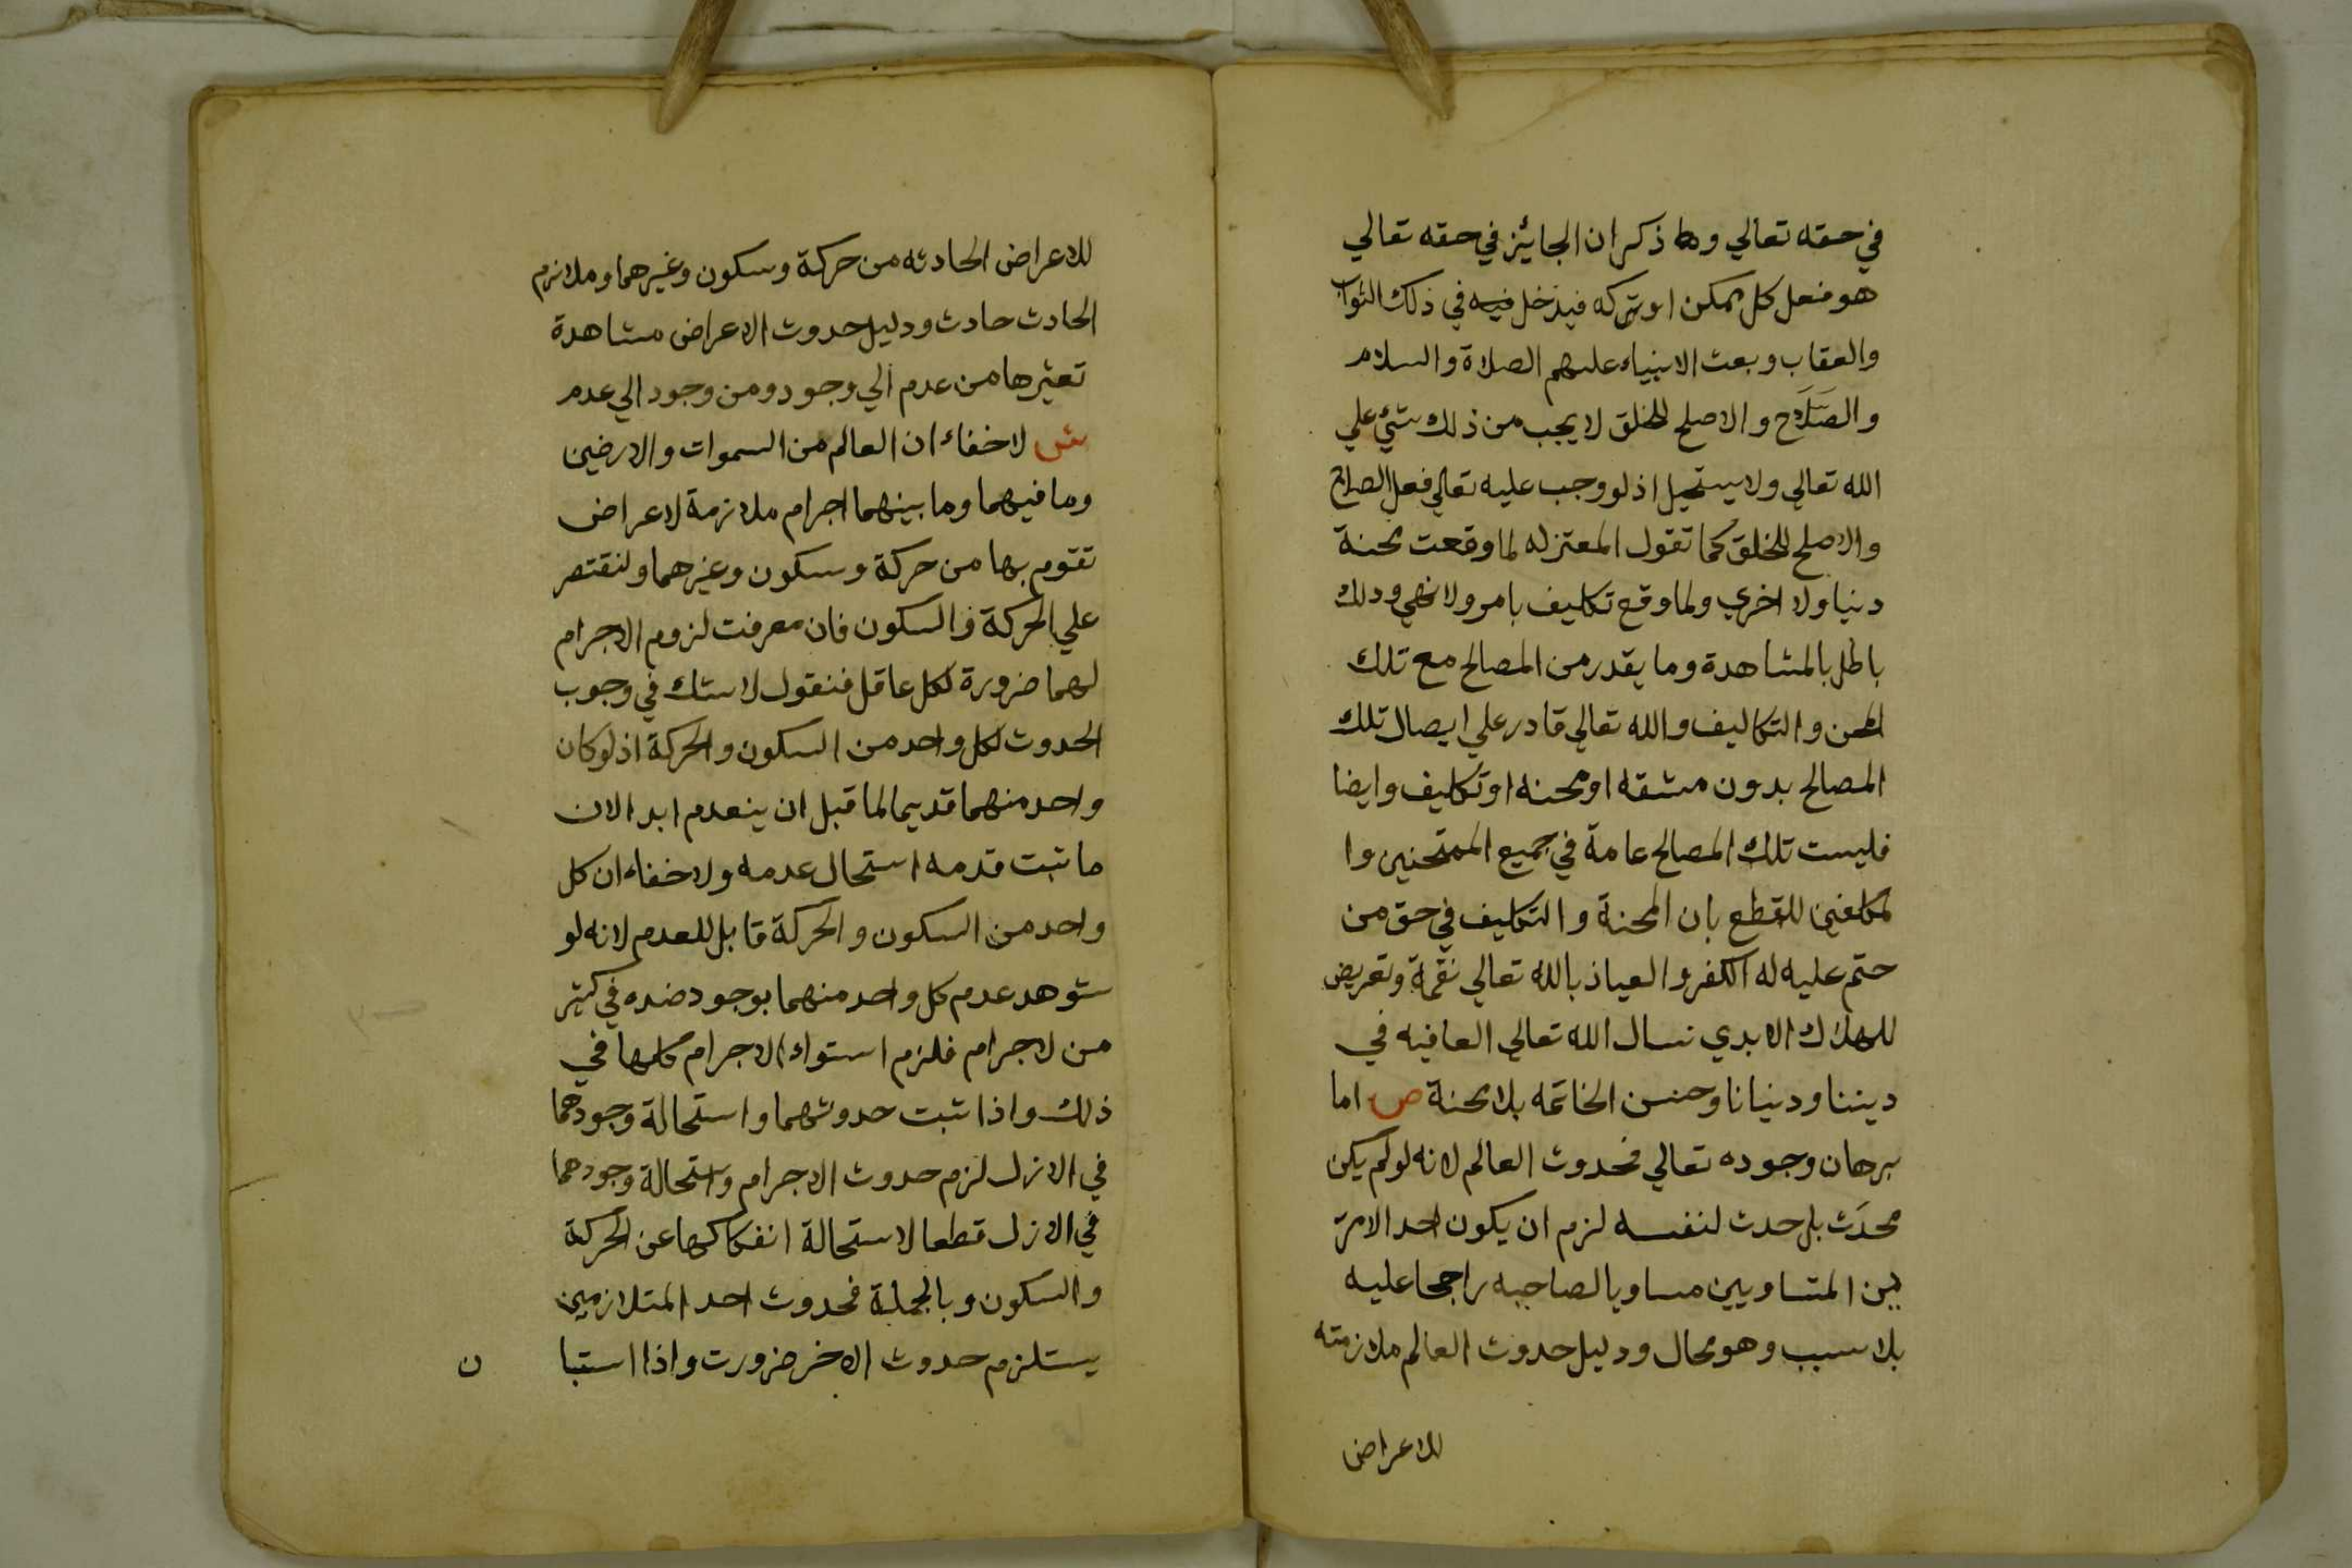 في حقه تعالي وها ذكر ان الجائيز في حقه تعالي
هو فعل كل ممكن او تركه فيدخل فيه في ذلك الثواب
والعقاب وبعث الانبياء عليهم الصلاة والسلام
والصَلَاح والاصلح للخلق لا يجب من ذلك شئ علي
الله تعالي ولا يستحيل اذ لو وجب عليه تعالي فعل الصلاح
والاصلح للخلق كما تقول المعتزله لما وقعت محنة
دنيا ولا اخري ولما وقع تكليف بامر ولا نهي وذلك
باطل بالمشاهدة وما يقدر من المصالح مع تلك
لمحن والتكاليف والله تعالي قادر علي ايصال تلك
المصالح بدون مشقه او محنه او تكليف وايضا
فليست تلك المصالح عامة في جميع الممتحنين وا
لمكلفين للقطع بان المحنة والتكليف في حق من
حتم عليه له الكفر والعياذ بالله تعالي نقمة وتعريض
للهلاك الابدي نسال الله تعالي العافيه في
ديننا ودنيانا وحسن الخاتمه بلا محنة ص اما
برهان وجوده تعالي فحدوث العالم لانه لو لم يكن
محدَث بل حدث لنفسه لزم ان يكون احد الامر
ين المتساويين مساويا لصاحبه راجحا عليه
بلا سبب وهو محال ودليل حدوث العالم ملازمته
للاعراض
للاعراض الحادثه من حركة وسكون وغيرهما وملازم
الحادث حادث ودليل حدوث الاعراض مشاهدة
تغيرها من عدم الي وجود ومن وجود الي عدم
ش لاخفاء ان العالم من السموات والارضين
وما فيهما وما بينهما اجرام ملازمة لاعراض
تقوم بها من حركة وسكون وغيرهما ولنقتصر
علي الحركة والسكون فان معرفت لزوم الاجرام
لهما ضرورة لكل عاقل فنقول لا شك في وجوب
الحدوث لكل واحد من السكون والحركة اذ لو كان
واحد منهما قديما لما قبل ان ينعدم ابدا لان
ما ثبت قدمه استحال عدمه ولا خفاء ان كل
واحد من السكون والحركة قابل للعدم لانه لو
شوهد عدم كل واحد منهما بوجود ضده في كثير
من لاجرام فلزم استواء الاجرام كلها في
ذلك واذا ثبت حدوثهما واستحالة وجودهما
في الازل لزم حدوث الاجرام واستحالة وجودهما
في الازل قطعا لاستحالة انفكاكها عن الحركة
والسكون وبالجملة فحدوث احد المتلازمين
يستلزم حدوث الاخر ضرورت واذا استبا ن